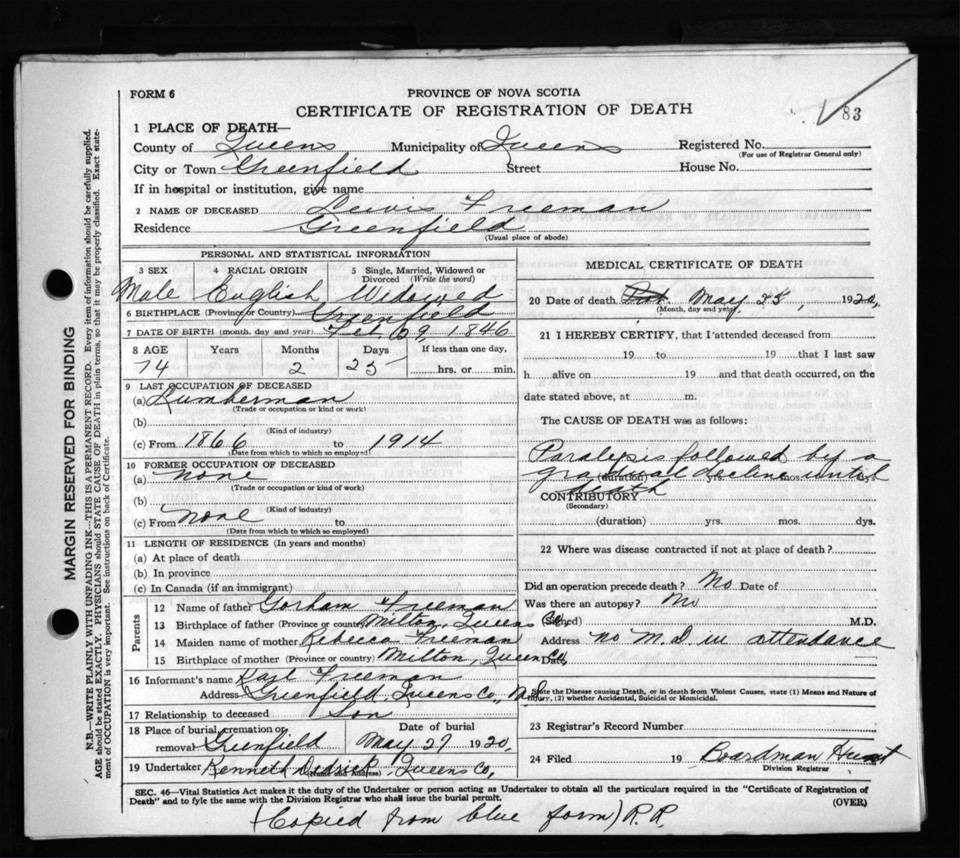 FORM 6
PROVINCE OF NOVA SCOTIA
CERTIFICATE OF REGISTRATION OF DEATH
83
1 PLACE OF DEATH—
County of Queens Municipality of Queens Registered No.
(For use of Registrar General only)
City or Town Greenfield Street House No.
If in hospital or institution, give name
2 NAME OF DECEASED Lewis Freeman
Residence Greenfield
(Usual place of abode)
PERSONAL AND STATISTICAL INFORMATION
3 SEX 4 RACIAL ORIGIN 5 Single, Married, Widowed or Divorced (Write the word)
Male English Widowed
6 BIRTHPLACE (Province or Country) Greenfield
7 DATE OF BIRTH (month, day and year) Feb 9, 1846
8 AGE Years Months Days If less than one day,
74 2 25 hrs. or min.
9 LAST OCCUPATION OF DECEASED
(a) Lumberman
(Trade or occupation or kind or work)
(b)
(Kind of industry)
(c) From 1866 to 1914
(Date from which to which so employed)
10 FORMER OCCUPATION OF DECEASED
(a) none
(Trade or occupation or kind of work)
(b)
(Kind of industry)
(c) From none to
(Date from which to which so employed)
11 LENGTH OF RESIDENCE (In years and months)
(a) At place of death
(b) In province
(c) In Canada (if an immigrant)
Parents
12 Name of father Gorham Freeman
13 Birthplace of father (Province or country) Milton, Queens Co,
14 Maiden name of mother Rebecca Freeman
15 Birthplace of mother (Province or country) Milton, Queen Co,
16 Informant's name Karl Freeman
Address Greenfield, Queens Co, N.S.
17 Relationship to deceased Son
18 Place of burial, cremation or removal Greenfield Date of burial May 27 1920,
19 Undertaker Kenneth Dedrick, Queens Co,
(Name and Address)
MEDICAL CERTIFICATE OF DEATH
20 Date of death May 25, 1920,
(Month, day and year)
21 I HEREBY CERTIFY, that I attended deceased from
19 to 19 that I last saw
h alive on 19 and that death occurred, on the
date stated above, at m.
The CAUSE OF DEATH was as follows:
Paralysis followed by a
gradual decline until
(duration) yrs. mos. ds.
death
CONTRIBUTORY
(Secondary)
(duration) yrs. mos. dys.
22 Where was disease contracted if not at place of death?
Did an operation precede death? No Date of
Was there an autopsy? No
(Signed) M.D.
Address no M.D in attendance
Date,
State the Disease causing Death, or in death from Violent Causes, state (1) Means and Nature of
Injury, (2) whether Accidental, Suicidal or Homicidal.
23 Registrar's Record Number
24 Filed 19 Boardman Hunt
Division Registrar
SEC. 46—Vital Statistics Act makes it the duty of the Undertaker or person acting as Undertaker to obtain all the particulars required in the "Certificate of Registration of
Death" and to fyle the same with the Division Registrar who shall issue the burial permit. (OVER)
(Copied from blue form) R.R.
MARGIN RESERVED FOR BINDING
N.B.—WRITE PLAINLY WITH UNFADING INK—THIS IS A PERMANENT RECORD. Every item of information should be carefully supplied.
AGE should be stated EXACTLY. PHYSICIANS should STATE CAUSE OF DEATH in plain terms, so that it may be properly classified. Exact state-
ment of OCCUPATION is very important. See instructions on back of Certificate.